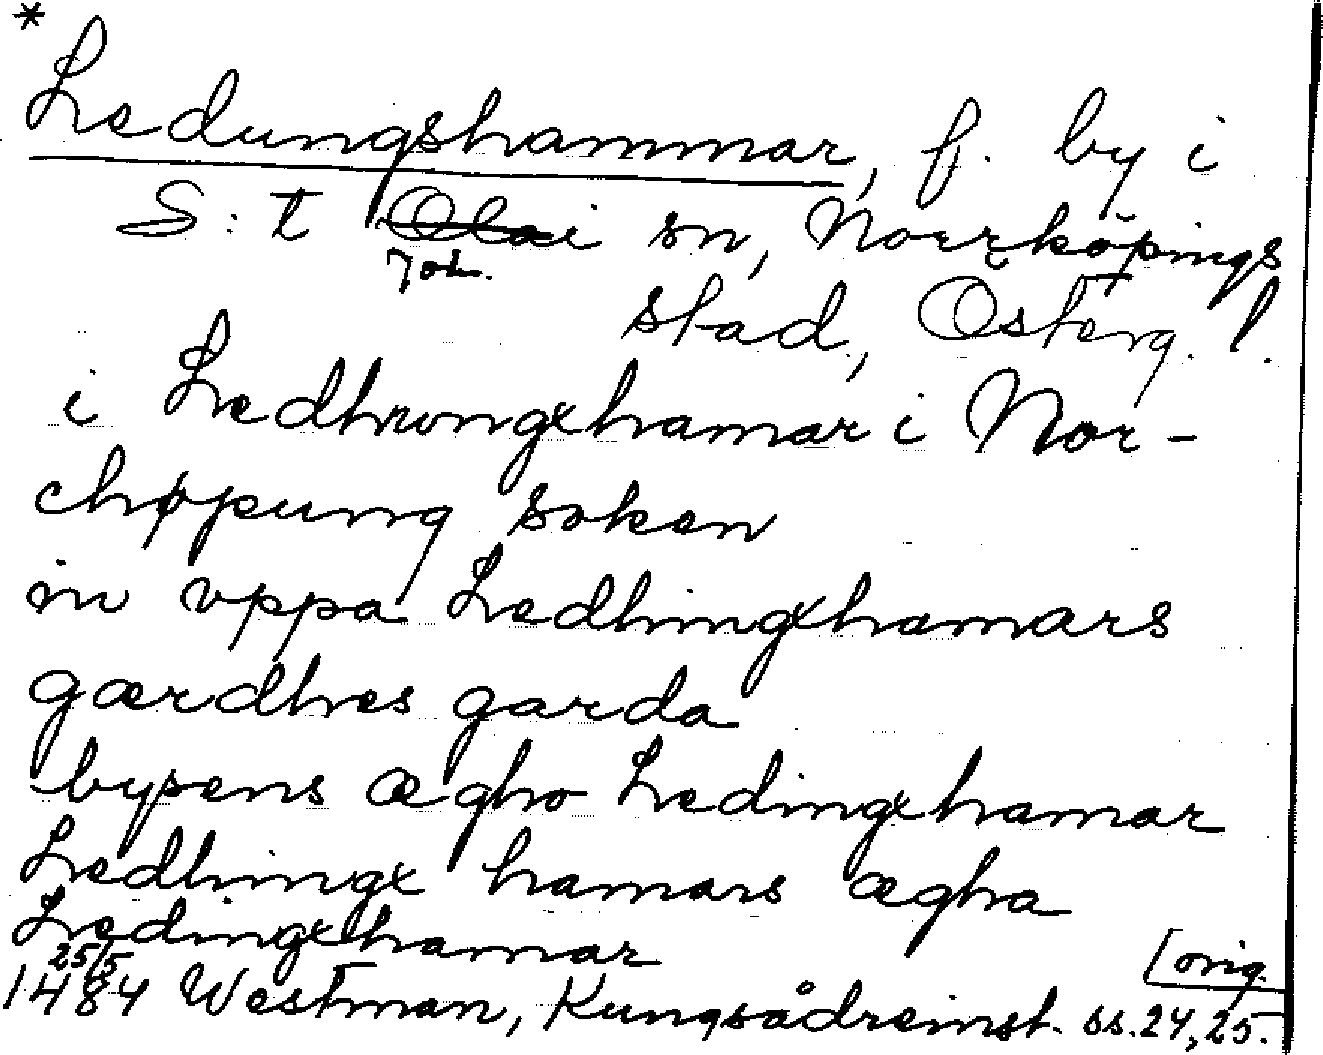 *
Ledungshammar, f. by i
S:t Olai sn, Norrköpings
Joh.
stad, Österg. l.
i Ledhwngxhamar i Nor-
chøpung soken
in vppa Ledhingxhamars
gærdhes garda
bysens ægho Ledingxhamar
Ledhingx hamars ægha
Ledingxhamar
[orig.
25/5
1484 Westman, Kungsådreinst. ss. 24, 25.